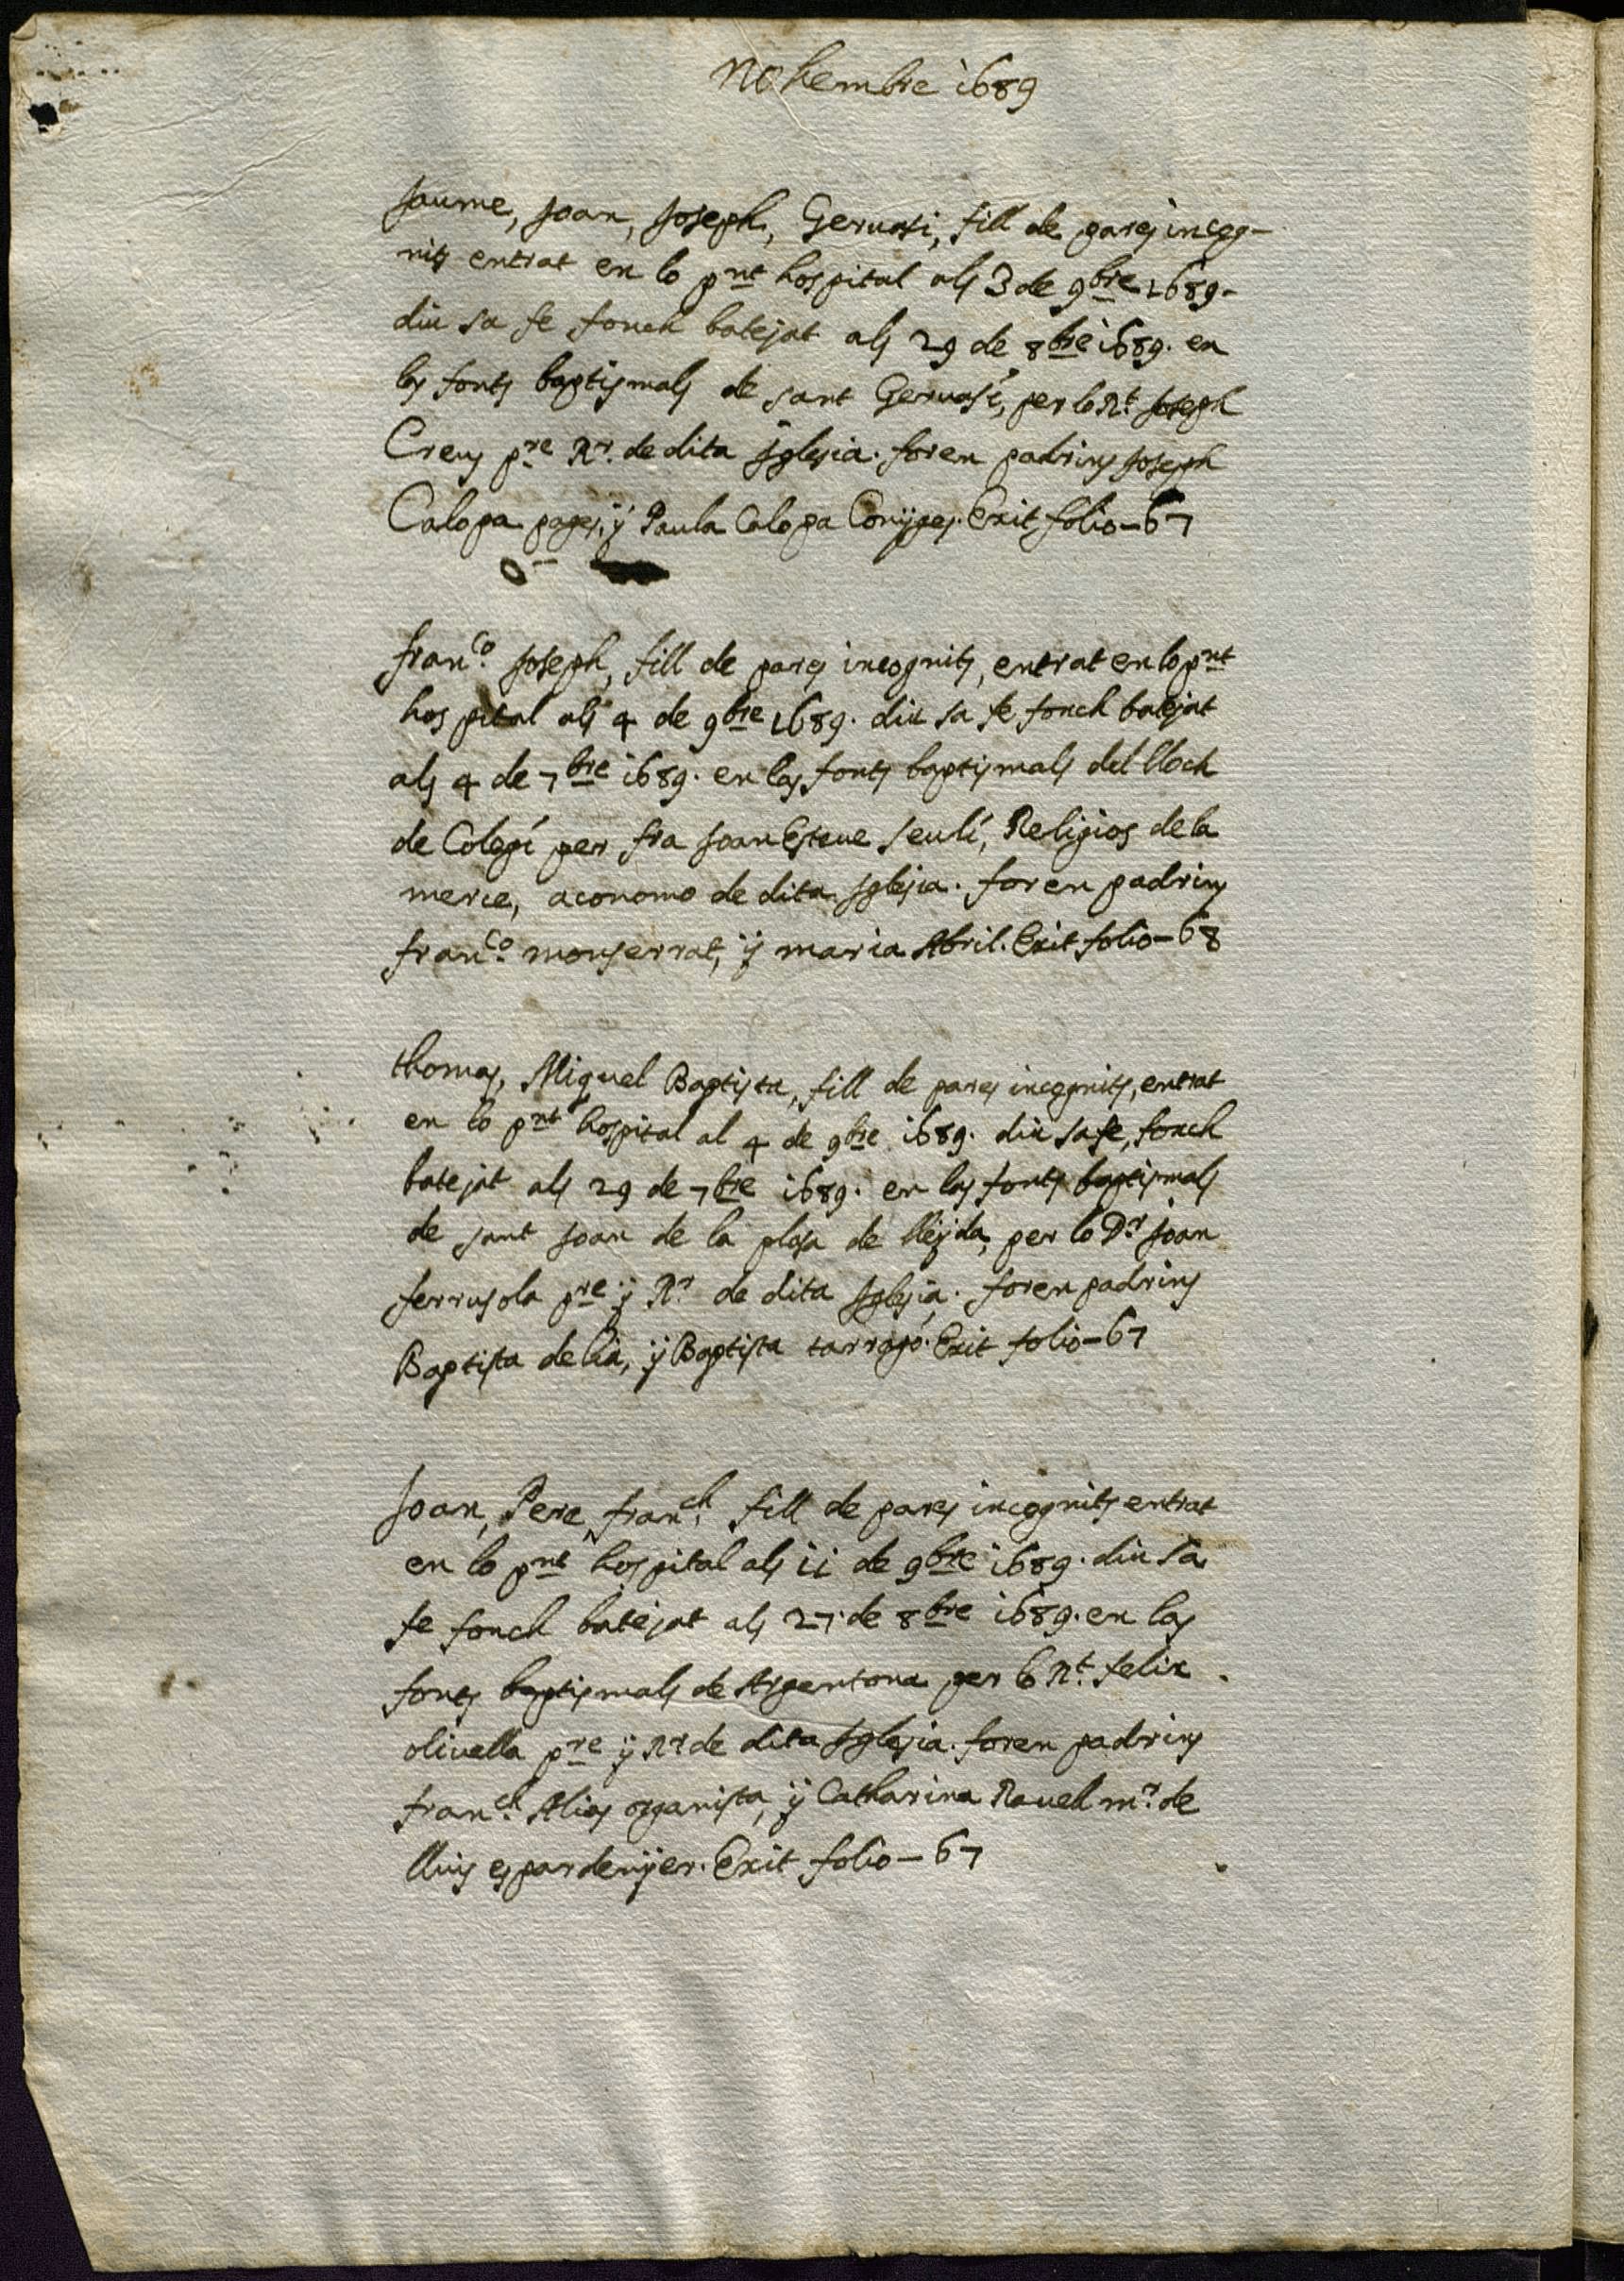 Nohembre 1689
Jaume, Joan, Joseph, Gervasi, fill de pares incog-
nits entrat en lo pnt hospital als 3 de 9bre 1689.
diu sa fe fonch batejat als 29 de 8bre 1689. en
las fonts baptismals de sant Gervasi, per lo Rt. Joseph
Creus pre Rr. de dita Iglesia. foren padrins Joseph
Calopa pages, ÿ Paula Calopa Conÿges. Exit folio-67
franco. Joseph, fill de pares incognits, entrat en lo pnt
hospital als 4 de 9bre 1689. diu sa fe fonch batejat
als 4 de 7bre 1689. en las fonts baptismals del lloch
de Colegí per fra Joan Esteve seulí, Religios de la
merce, aconomo de dita Iglesia. foren padrins
franco. monserrat, ÿ maria Abril. Exit folio-68
thomas, Miquel Baptista, fill de pares incognits, entrat
en lo pnt hospital al 4 de 9bre 1689. diu sa fe, fonch
batejat als 29 de 7bre 1689. en las fonts baptismals
de sant Joan de la plasa de lleÿda, per lo Dr Joan
ferrusola pre ÿ Rr de dita Iglesia. foren padrins
Baptista delia, ÿ Baptista tarragó. Exit folio-67
Joan, Pere, franch. fill de pares incognits entrat
en lo pnt hospital als 11 de 9bre 1689. diu sa
fe fonch batejat als 27 de 8bre 1689. en las
fonts baptismals de Argentona per lo Rt. felix
olivella pre ÿ Rr de dita Iglesia. foren padrins
franch. Alias organista, ÿ Catharina Ravell mr. de
lluis espardenÿer. Exit folio-67